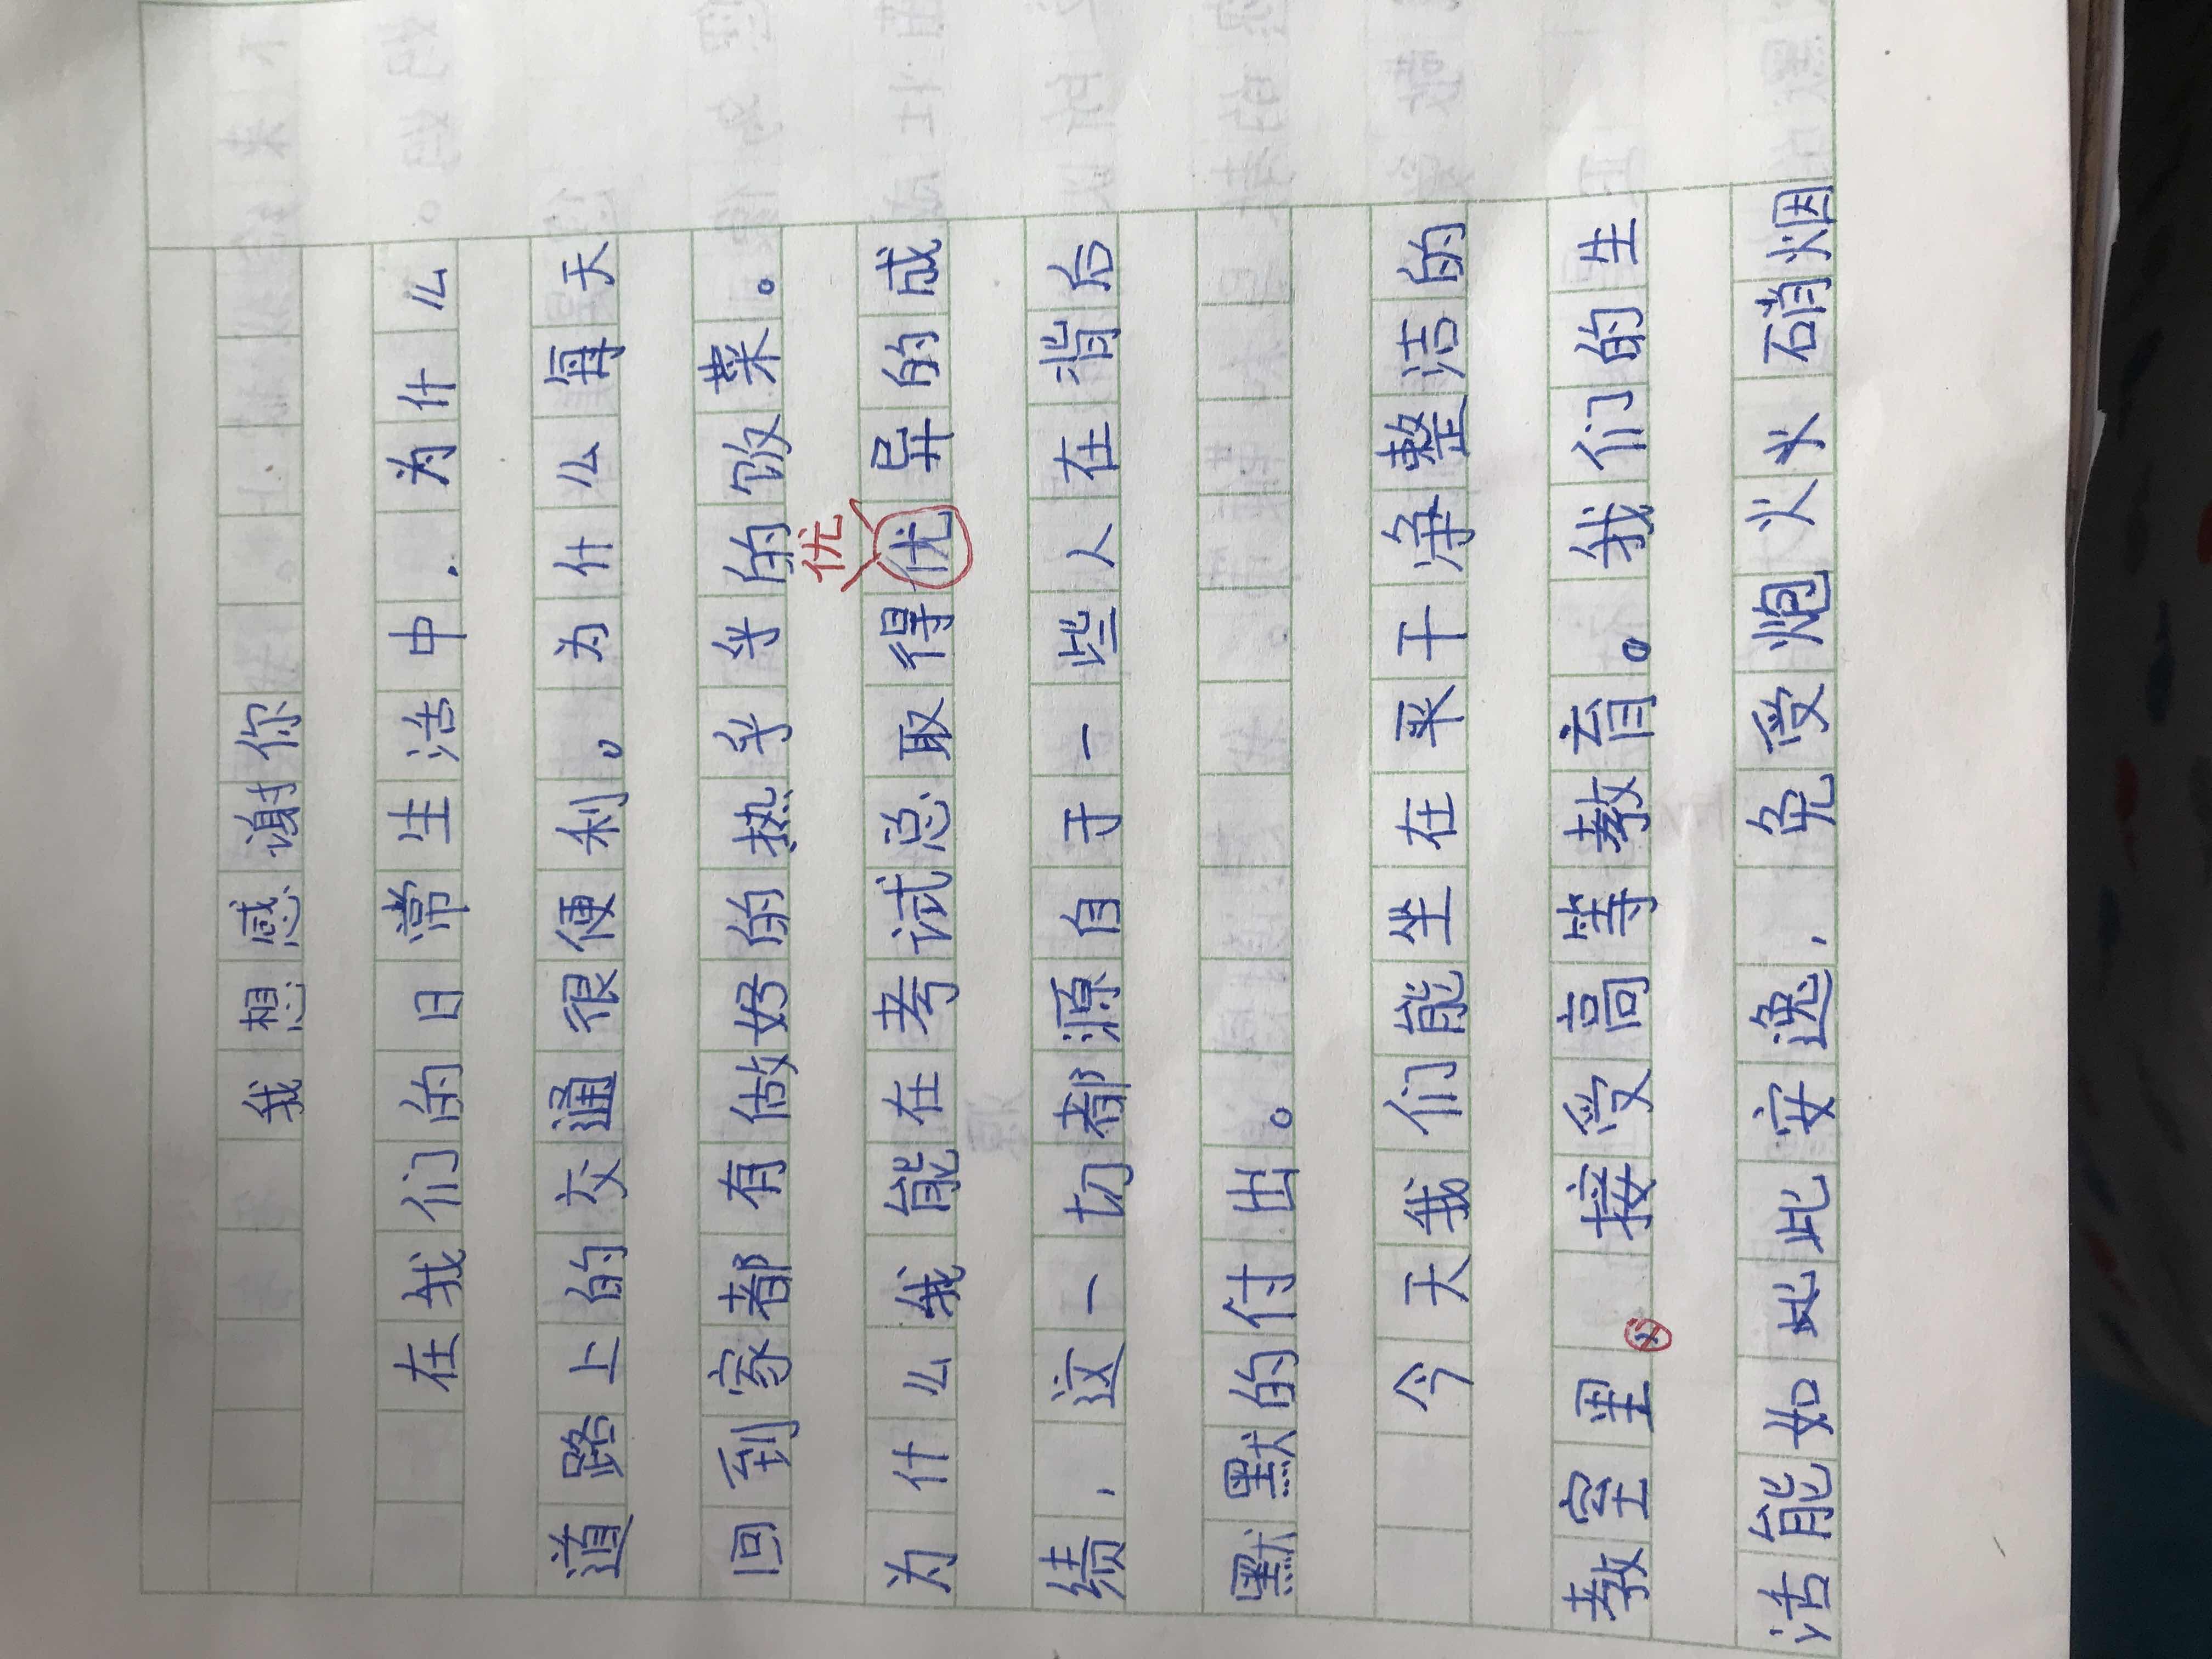 我想感谢你
在我们的日常生活中，为什么
道路上的交通很便利。为什么每天
回到家都有做好的热乎乎的饭菜。
优
为什么我能在考试总取得优异的成
绩，这一切都源自于一些人在背后
默默的付出。
今天我们能坐在平干净整洁的
教室里。接受高等教育。我们的生
活能如此安逸，免受炮火硝烟